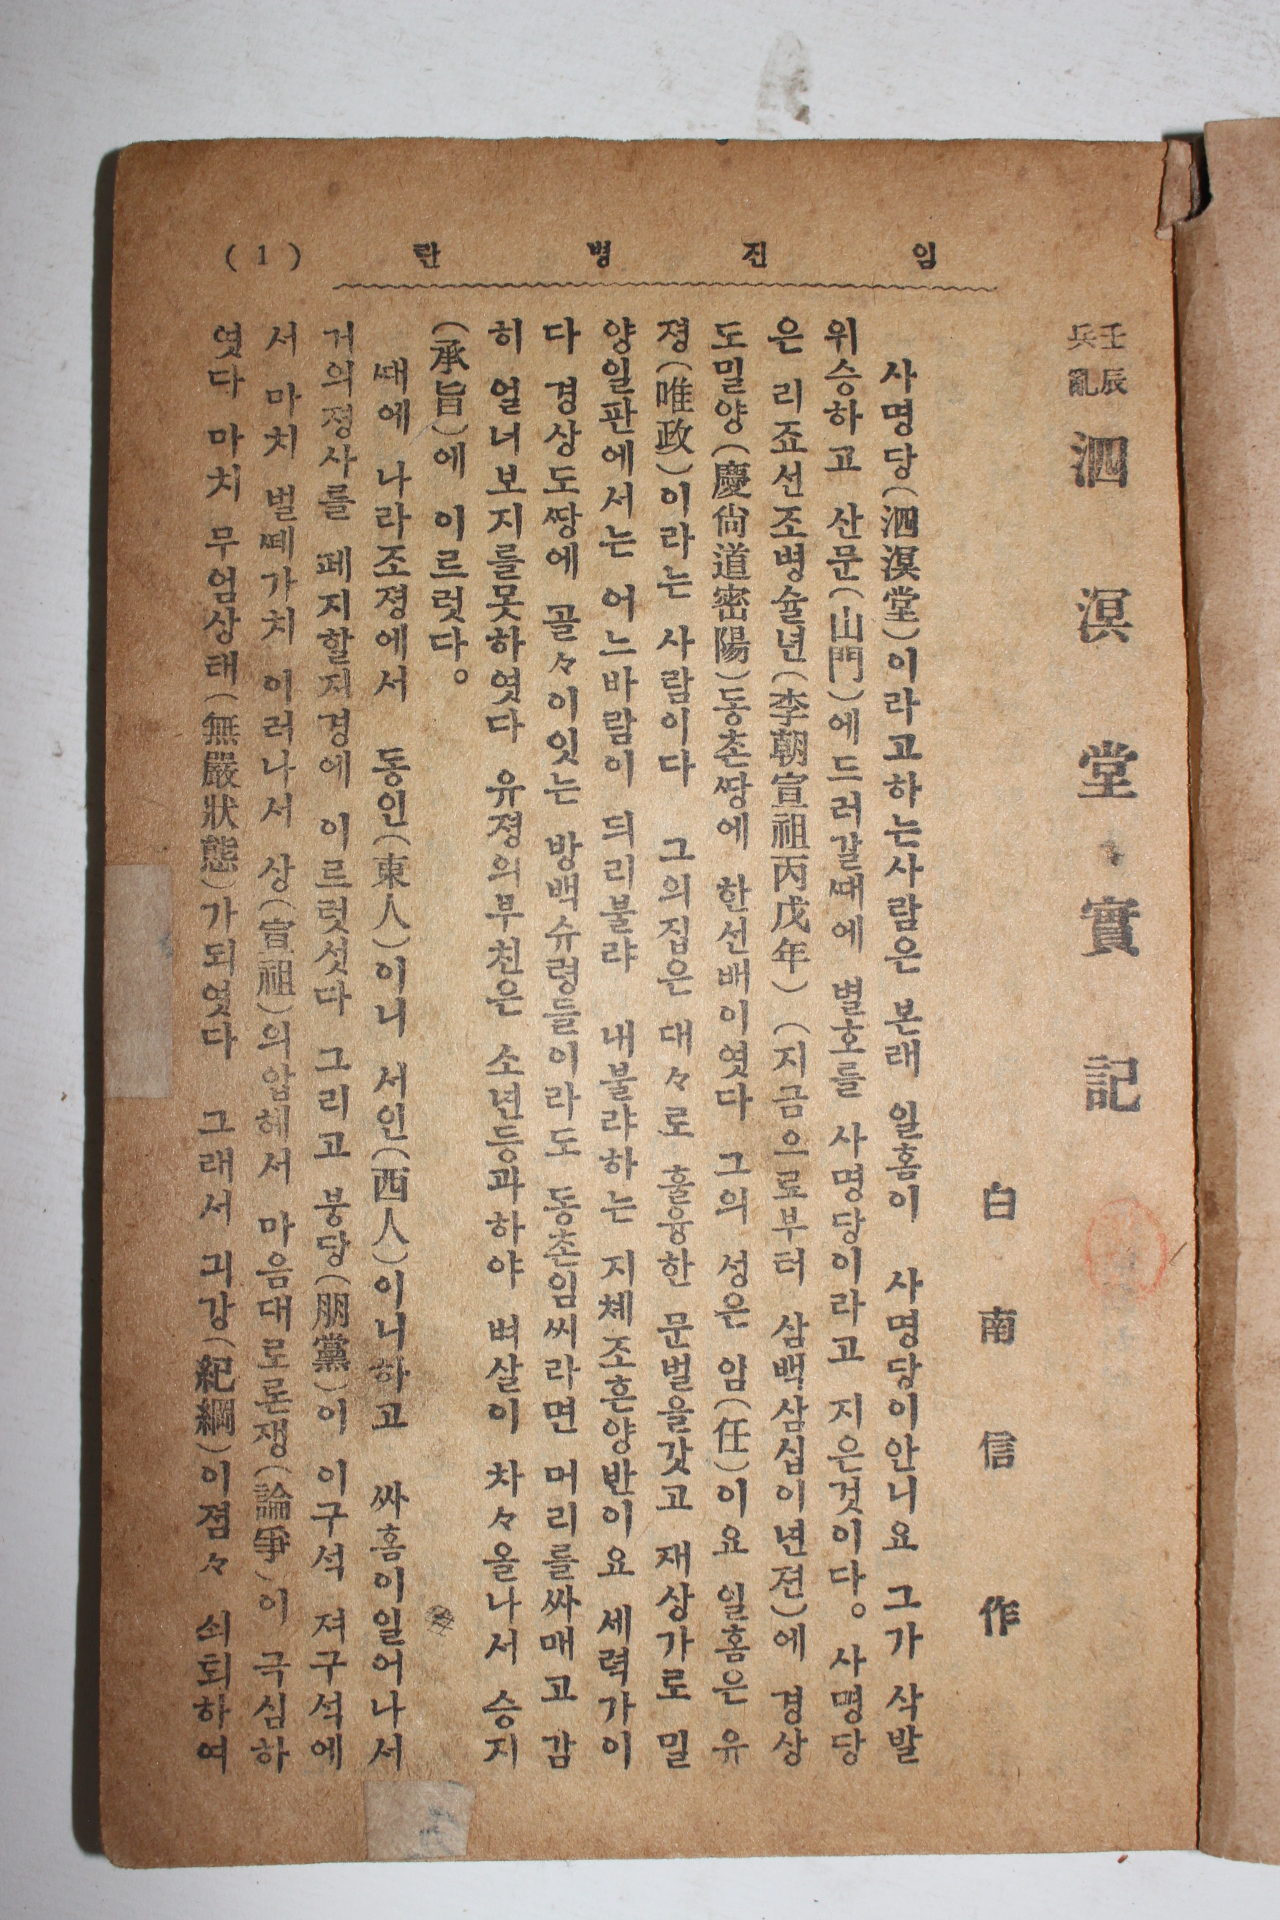 임진병란 (1)
壬辰兵亂 泗溟堂實記
白南信 作
사명당(泗溟堂)이라고하는사람은 본래 일홈이 사명당이안니요 그가 삭발
위승하고 산문(山門)에드러갈ᄯᅢ에 별호를 사명당이라고 지은것이다。 사명당
은 리죠선조병슐년(李朝宣祖丙戊年) (지금으로부터 삼백삼십이년젼)에 경상
도밀양(慶尙道密陽)동촌ᄯᅡᆼ에 한선배이엿다 그의 성은 암(任)이요 일홈은 유
졍(唯政)이라는 사람이다 그의집은 대々로 훌융한 문벌을갓고 재상가로 밀
양일판에서는 어느바람이 듸리불랴 내불랴하는 지체조흔양반이요 세력가이
다 경상도ᄯᅡᆼ에 골々이잇는 방백슈령들이라도 동촌임씨라면 머리를싸매고 감
히 얼너보지를못하엿다 유졍의부친은 소년등과하야 벼살이 차々올나서 승지
(承旨)에 이르럿다。
ᄯᅢ에 나라조졍에서 동인(東人)이니 서인(西人)이니하고 싸홈이일어나서
거의졍사를 페지할지경에 이르럿섯다 그리고 붕당(朋黨)이 이구석 져구석에
서 마치 벌ᄯᅦ가치 이러나서 상(宣祖)의압헤서 마음대로론쟁(論爭)이 극심하
엿다 마치 무엄상태(無嚴狀態)가되엿다 그래서 긔강(紀綱)이졈々 쇠퇴하여